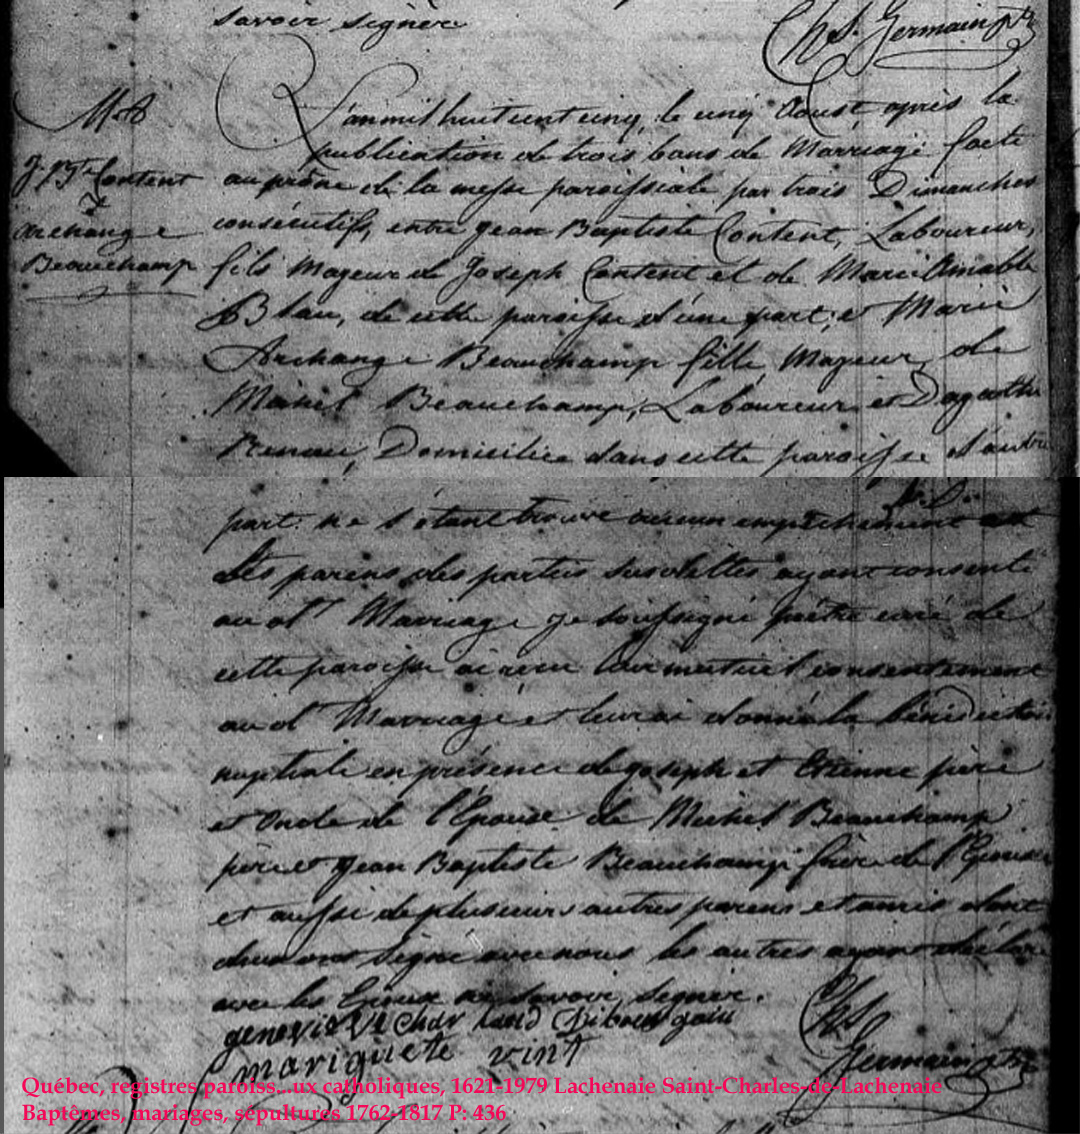 savoir signer
Chs. Germain ptr
M. 8
J. Bte Content
&
Archange
Beauchamp
L'an mil huit cent cinq, le cinq Aoust après la
publication de trois bans de Mariage faite
au prône de la messe paroissiale par trois Dimanches
consécutifs, entre Jean Baptiste Content, Laboureur,
fils Majeur de Joseph Content et de Marie Amable
Blau, de cette paroisse d'une part; et Marie
Archange Beauchamp fille Majeur de
Michel Beauchamp, Laboureur et D'agathe
Renau, Domiciliée dans cette paroisse d'autre
part. ne s'étant trouvé aucun empêchement
Les parens des parties susdittes ayant consenti
au dt Mariage je soussigné prêtre curé de
cette paroisse ai reçu leur mutuel consentement
au dt Mariage et leur ai donné la bénédiction
nuptiale en présence de Joseph et Etienne père
et Oncle de l'Epouse de Michel Beauchamp
père et Jean Baptiste Beauchamp frère de l'Epouse
et aussi de plusieurs autres parens et amis dont
deux ont signé avec nous les autres ayant déclaré
avec les Epoux ne savoir signer.
genevieve Char land
mariguete vint
Chs
Germain ptr
Québec, registres paroiss...ux catholiques, 1621-1979 Lachenaie Saint-Charles-de-Lachenaie
Baptêmes, mariages, sépultures 1762-1817 P: 436